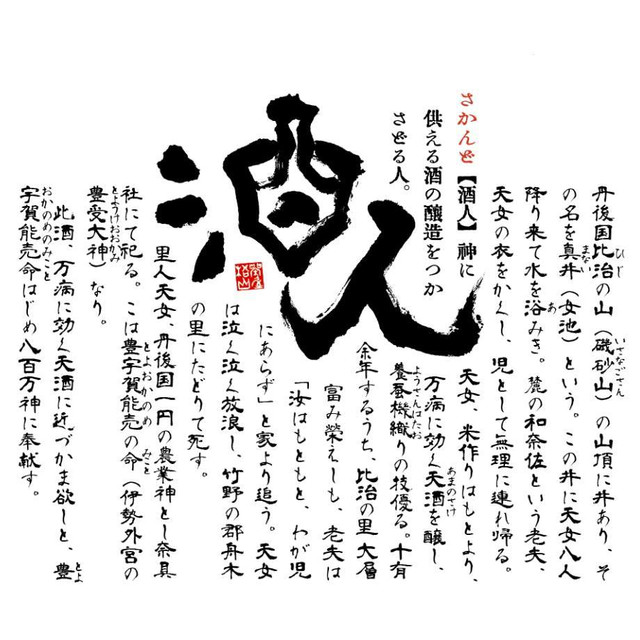 酒人
さかんど【酒人】神に
供える酒の醸造をつか
さどる人。
ひじ いさなごさん
丹後国比治の山(磯砂山)の山頂に井あり、そ
まない
の名を真井(女池)という。この井に天女八人
あ
降り来て水を浴みき。麓の和奈佐という老夫、
天女の衣をかくし、児として無理に連れ帰る。
天女、米作りはもとより、
あまのさけ
万病に効く天酒を醸し、
ようさんはたお
養蚕機織りの技優る。十有
余年するうち、比治の里大層
富み榮えしも、老夫は
「汝はもともと、わが児
にあらず」と家より追う。天女
は泣く泣く放浪し、竹野の郡舟木
の里にたどりて死す。
里人天女、丹後国一円の農業神とし奈具
とよおかのめ みこと
社にて祀る。こは豊宇賀能売の命(伊勢外宮の
とようけおおかみ
豊受大神)なり。
とよ
此酒、万病に効く天酒に近づかま欲しと、豊
おかのめのみこと
宇賀能売命はじめ八百万神に奉献す。